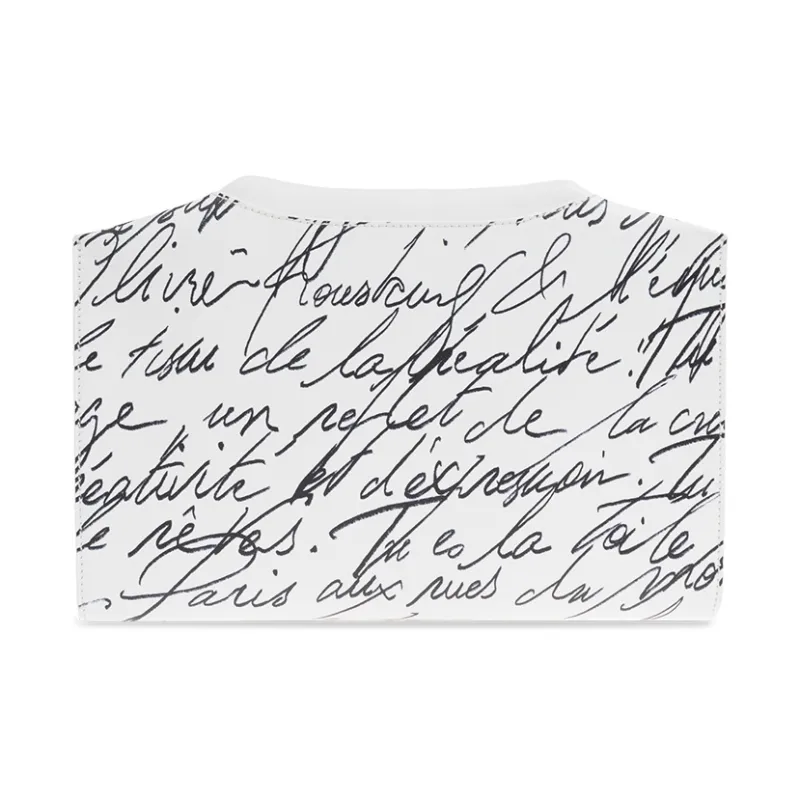 Olivier Rousteing & l'équi
le tissu de la réalité. Tu
ge un reflet de la cré
éativité et d'expression. Tu
e rêves. Tu es la toile
Paris aux rues du mo